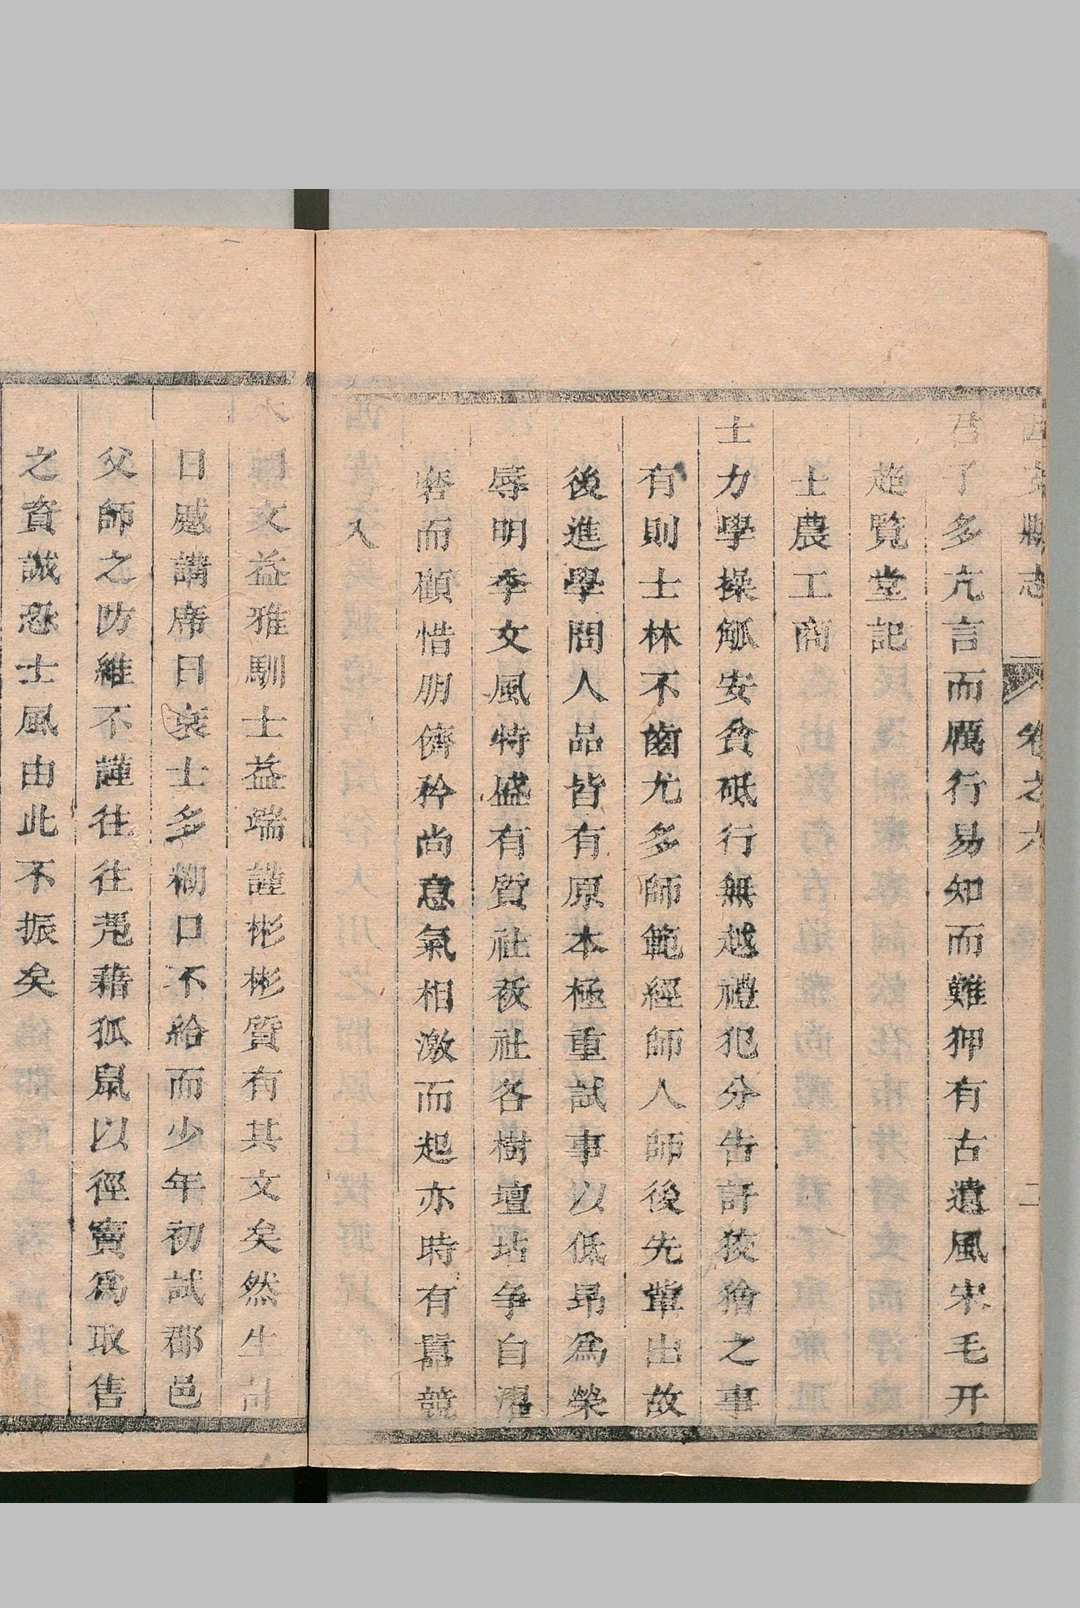 西安縣志 卷之六 二
子多亢言而厲行易知而難狎有古遺風宋毛幵
超覽堂記
士農工商
士力學操觚安貧砥行無越禮犯分告訐狡獪之事
有則士林不齒尤多師範經師人師後先輩出故
後進學問人品皆有原本極重試事以低昻為榮
辱明季文風特盛有質社莪社各樹壇坫争自濯
磨而顧惜朋儕矜尚意氣相激而起亦時有囂競
日文益雅馴士益端謹彬彬質有其文矣然生計
日蹙講席日衰士多糊口不給而少年初試郡邑
父師之防維不謹往往凭藉狐鼠以徑竇為取售
之資誠恐士風由此不振矣